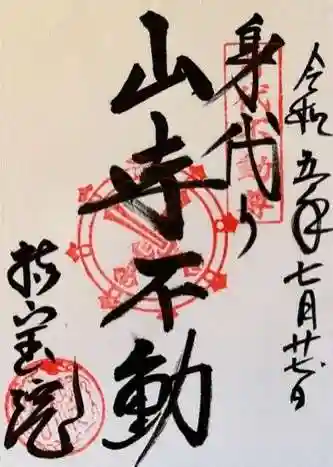 令和五年七月廿七日
身代り
山寺不動